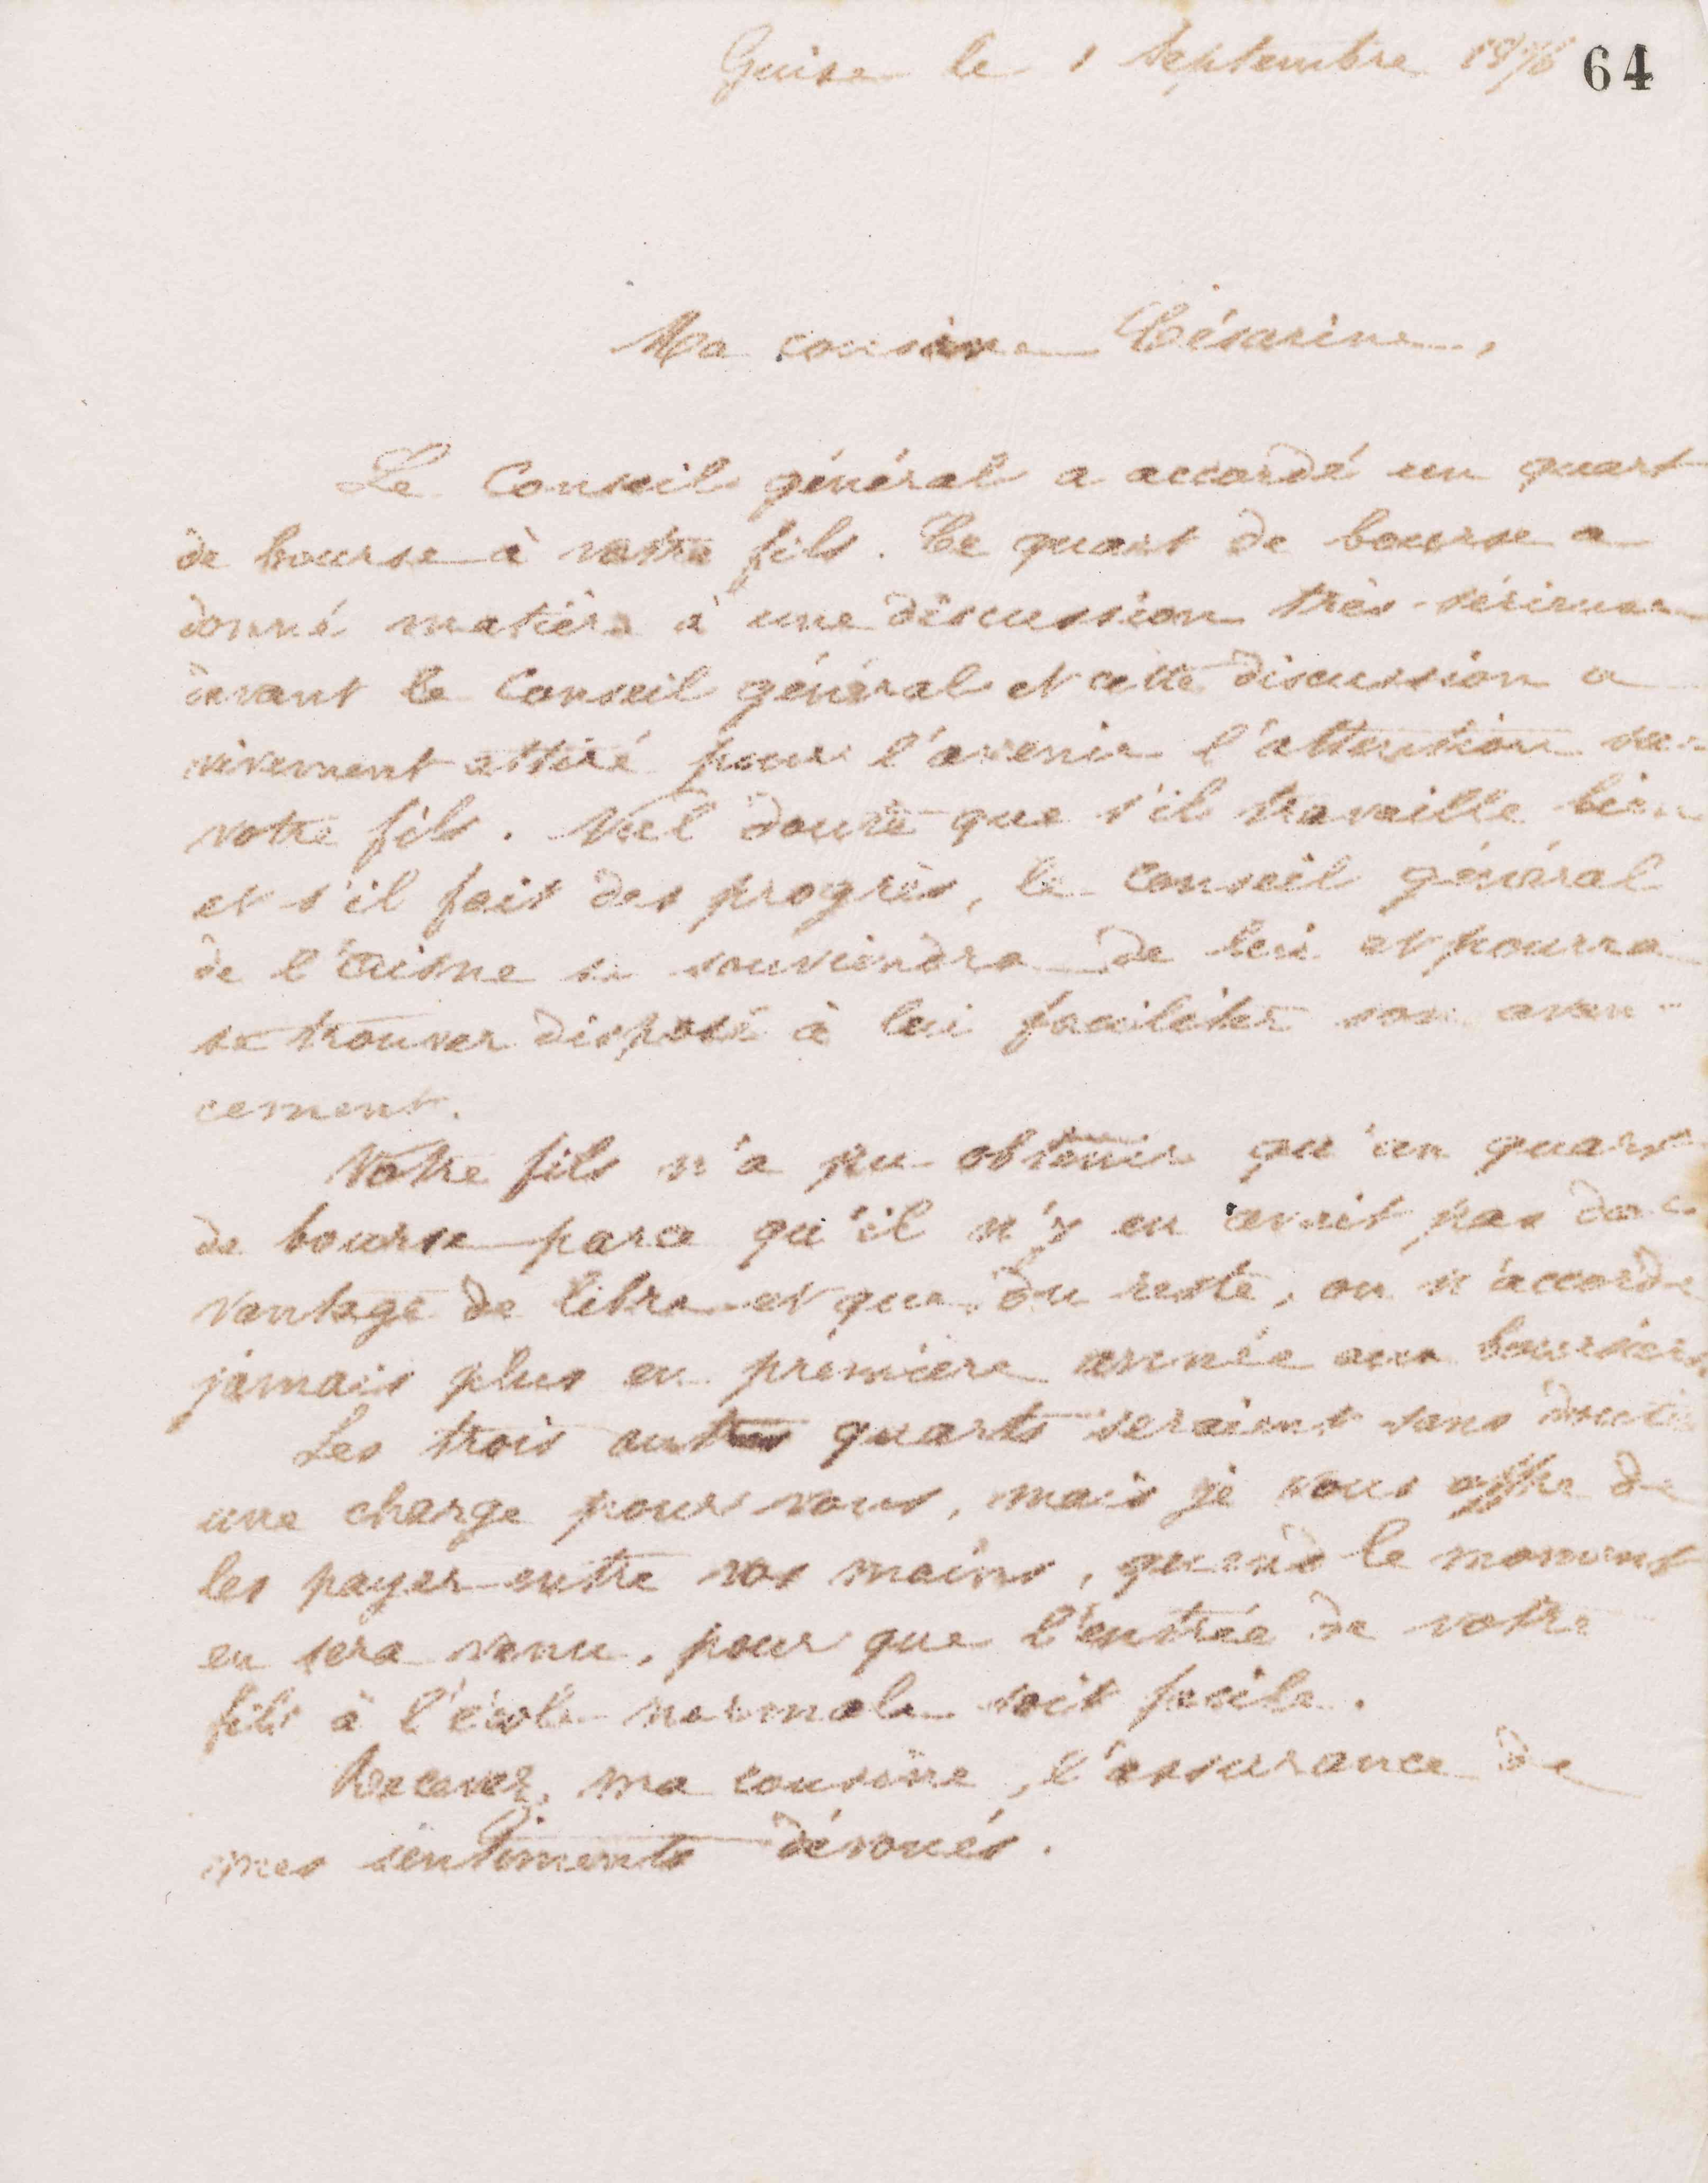 Guise le 1 Septembre 1876 64
Ma cousine Césarine,
Le Conseil général a accordé un quart
de bourse à votre fils. Ce quart de bourse a
donné matière à une discussion très sérieuse
devant le Conseil général et cette discussion a
vivement attiré pour l'avenir l'attention sur
votre fils. Nul doute que s'il travaille bien
et s'il fait des progrès, le Conseil général
de l'Aisne se souviendra de lui et pourra
se trouver disposé à lui faciliter son avan-
cement.
Votre fils n'a pu obtenir qu'un quart
de bourse parce qu'il n'y en avait pas da-
vantage de libre et que, du reste, on n'accorde
jamais plus en première année aux boursiers
Les trois autres quarts seraient sans doute
une charge pour vous, mais je vous offre de
les payer entre vos mains, quand le moment
en sera venu, pour que l'entrée de votre
fils à l'école normale soit facile.
Recevez, ma cousine, l'assurance de
mes sentiments dévoués.